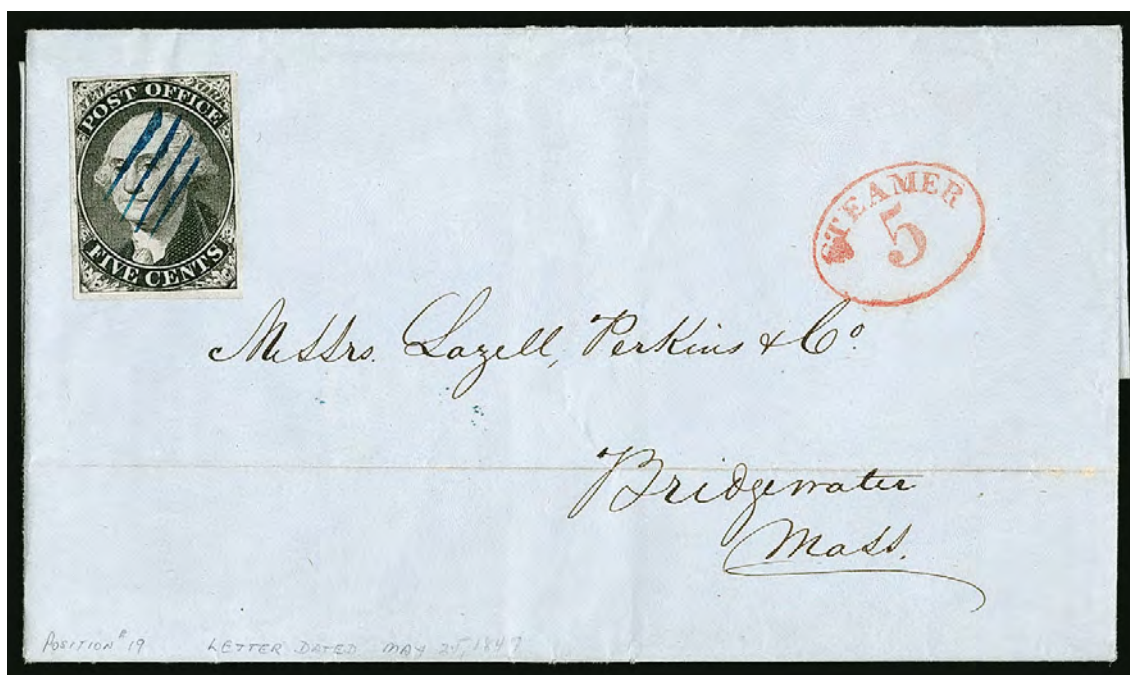 POST OFFICE
FIVE CENTS
STEAMER
5
Messrs. Lazell, Perkins & Co.
Bridgewater
Mass.
POSITION # 19 LETTER DATED MAY 25, 1847